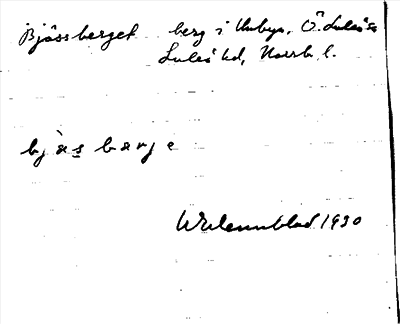 Bjässberget berg i Unbyn, Ö. Luleå sn
Luleå hd, Norrb. l.
bjäs barje
W Wennblad 1930